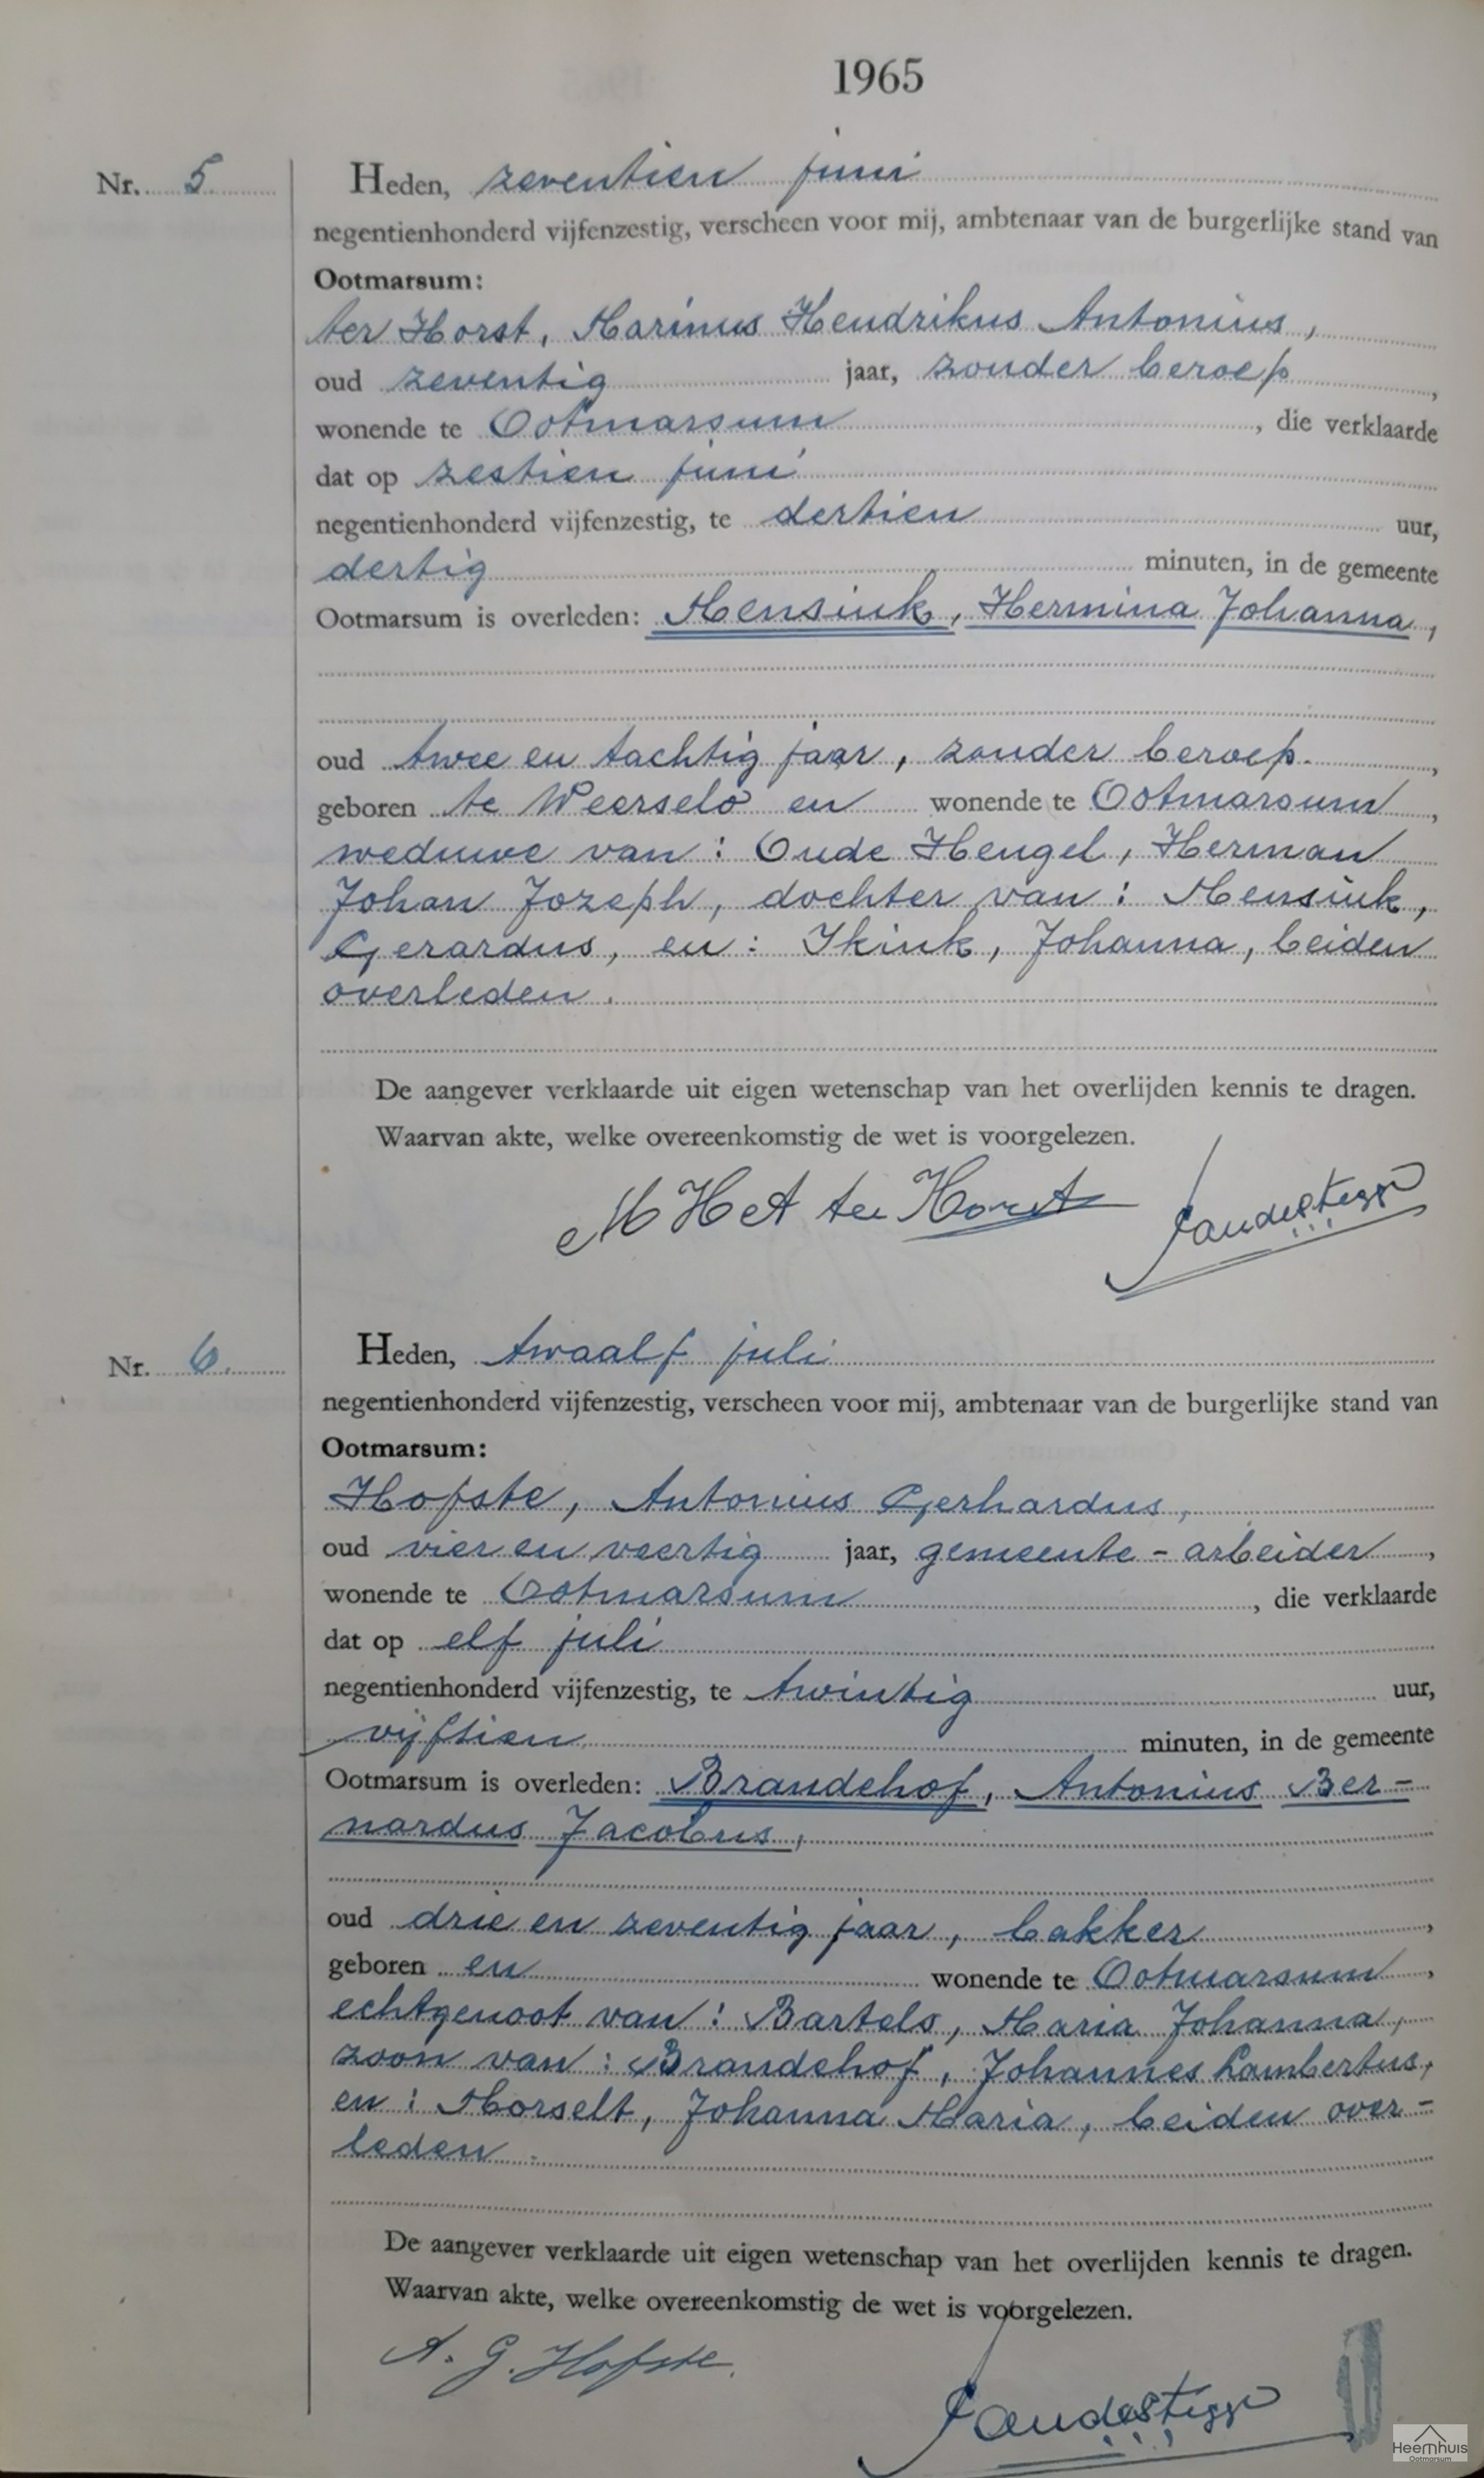 1965
Nr. 5. Heden, zeventien juni
negentienhonderd vijfenzestig, verscheen voor mij, ambtenaar van de burgerlijke stand van
Ootmarsum:
ter Horst, Marinus Hendrikus Antonius,
oud zeventig jaar, zonder beroep,
wonende te Ootmarsum, die verklaarde
dat op zestien juni
negentienhonderd vijfenzestig, te dertien uur,
dertig minuten, in de gemeente
Ootmarsum is overleden: Mensink, Hermina Johanna,
oud twee en tachtig jaar, zonder beroep.,
geboren te Weerselo en wonende te Ootmarsum,
weduwe van: Oude Hengel, Herman
Johan Jozeph, dochter van: Mensink,
Gerardus, en: Ikink, Johanna, beiden
overleden.
De aangever verklaarde uit eigen wetenschap van het overlijden kennis te dragen.
Waarvan akte, welke overeenkomstig de wet is voorgelezen.
M H A ter Horst
Nr. 6. Heden, twaalf juli
negentienhonderd vijfenzestig, verscheen voor mij, ambtenaar van de burgerlijke stand van
Ootmarsum:
Hofste, Antonius Gerhardus,
oud vier en veertig jaar, gemeente-arbeider,
wonende te Ootmarsum, die verklaarde
dat op elf juli
negentienhonderd vijfenzestig, te twintig uur,
vijftien minuten, in de gemeente
Ootmarsum is overleden: Brandehof, Antonius Ber-
nardus Jacobus,
oud drie en zeventig jaar, bakker,
geboren en wonende te Ootmarsum,
echtgenoot van: Bartels, Maria Johanna,
zoon van: Brandehof, Johannes Lambertus,
en: Morselt, Johanna Maria, beiden over-
leden.
De aangever verklaarde uit eigen wetenschap van het overlijden kennis te dragen.
Waarvan akte, welke overeenkomstig de wet is voorgelezen.
A. G. Hofste.
Heemhuis
Ootmarsum